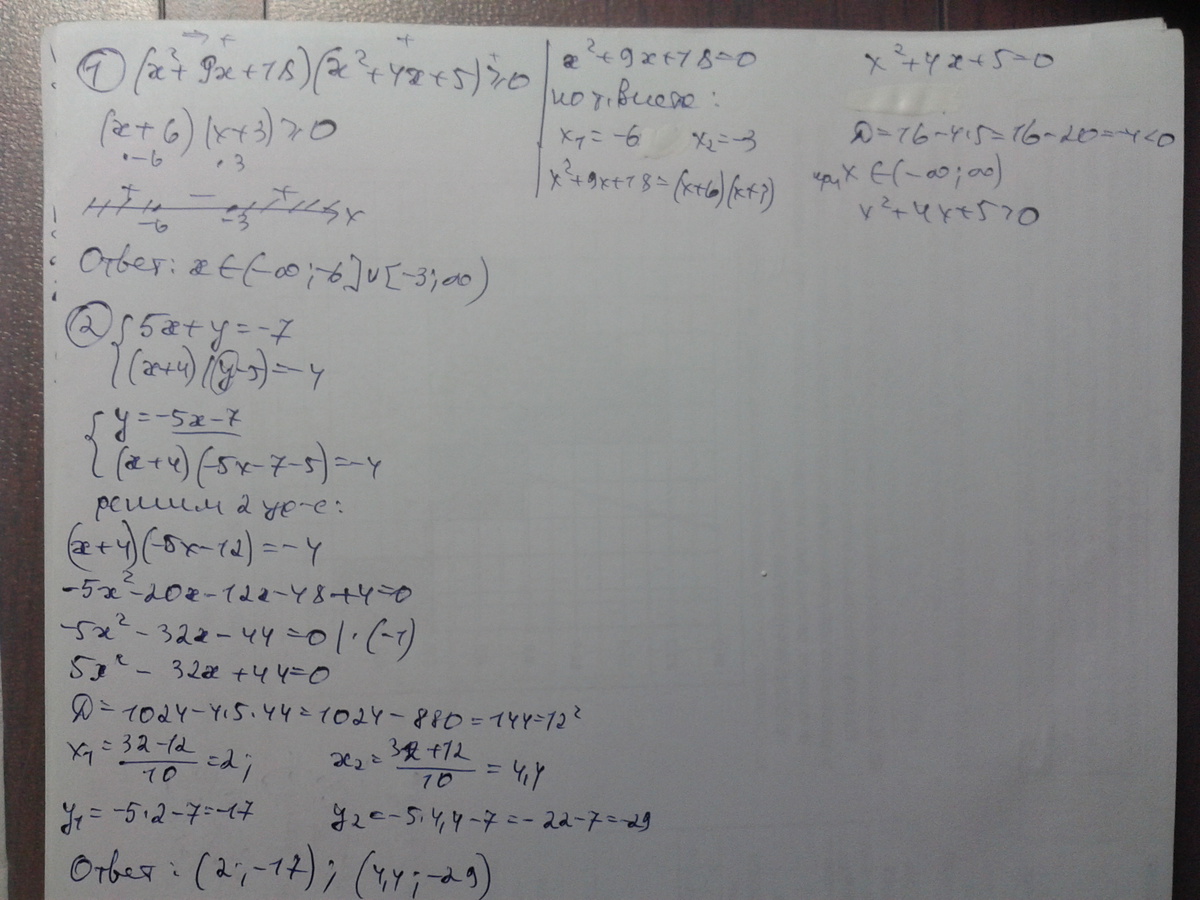 ① (x²+9x+18)(x²+4x+5)≥0
(x+6)(x+3)≥0
·-6 ·3
+ − +
-6 -3 x
Ответ: x∈(-∞;-6]∪[-3;∞)
x²+9x+18=0
по т. Виета:
x₁=-6 x₂=-3
x²+9x+18=(x+6)(x+3)
x²+4x+5=0
D=16-4·5=16-20=-4<0
при x∈(-∞;∞)
x²+4x+5>0
② {5x+y=-7
{(x+4)(y-5)=-4
{y=-5x-7
{(x+4)(-5x-7-5)=-4
решим 2 ур-е:
(x+4)(-5x-12)=-4
-5x²-20x-12x-48+4=0
-5x²-32x-44=0 |·(-1)
5x²-32x+44=0
D=1024-4·5·44=1024-880=144=12²
x₁=(32-12)/10=2; x₂=(32+12)/10=4,4
y₁=-5·2-7=-17 y₂=-5·4,4-7=-22-7=-29
Ответ: (2;-17); (4,4;-29)